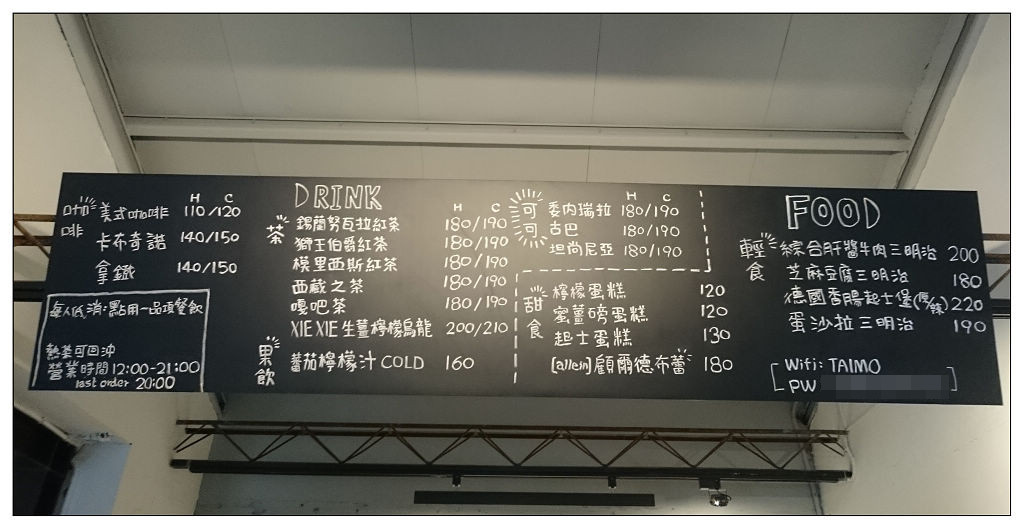 H C
咖啡
美式咖啡 110/120
卡布奇諾 140/150
拿鐵 140/150
每人低消:點用一品項餐飲
熱茶可回沖
營業時間12:00-21:00
last order 20:00
DRINK
H C
茶
錫蘭努瓦拉紅茶 180/190
獅王伯爵紅茶 180/190
模里西斯紅茶 180/190
西藏之茶 180/190
嘎吧茶 180/190
XIE XIE 生薑檸檬烏龍 200/210
果飲
蕃茄檸檬汁 COLD 160
H C
可可
委內瑞拉 180/190
古巴 180/190
坦尚尼亞 180/190
甜食
檸檬蛋糕 120
蜜薑磅蛋糕 120
起士蛋糕 130
[allein]顧爾德布蕾 180
FOOD
輕食
綜合肝醬牛肉三明治 200
芝麻豆腐三明治 180
德國香腸起士堡 220
蛋沙拉三明治 190
Wifi: TAIMO
PW